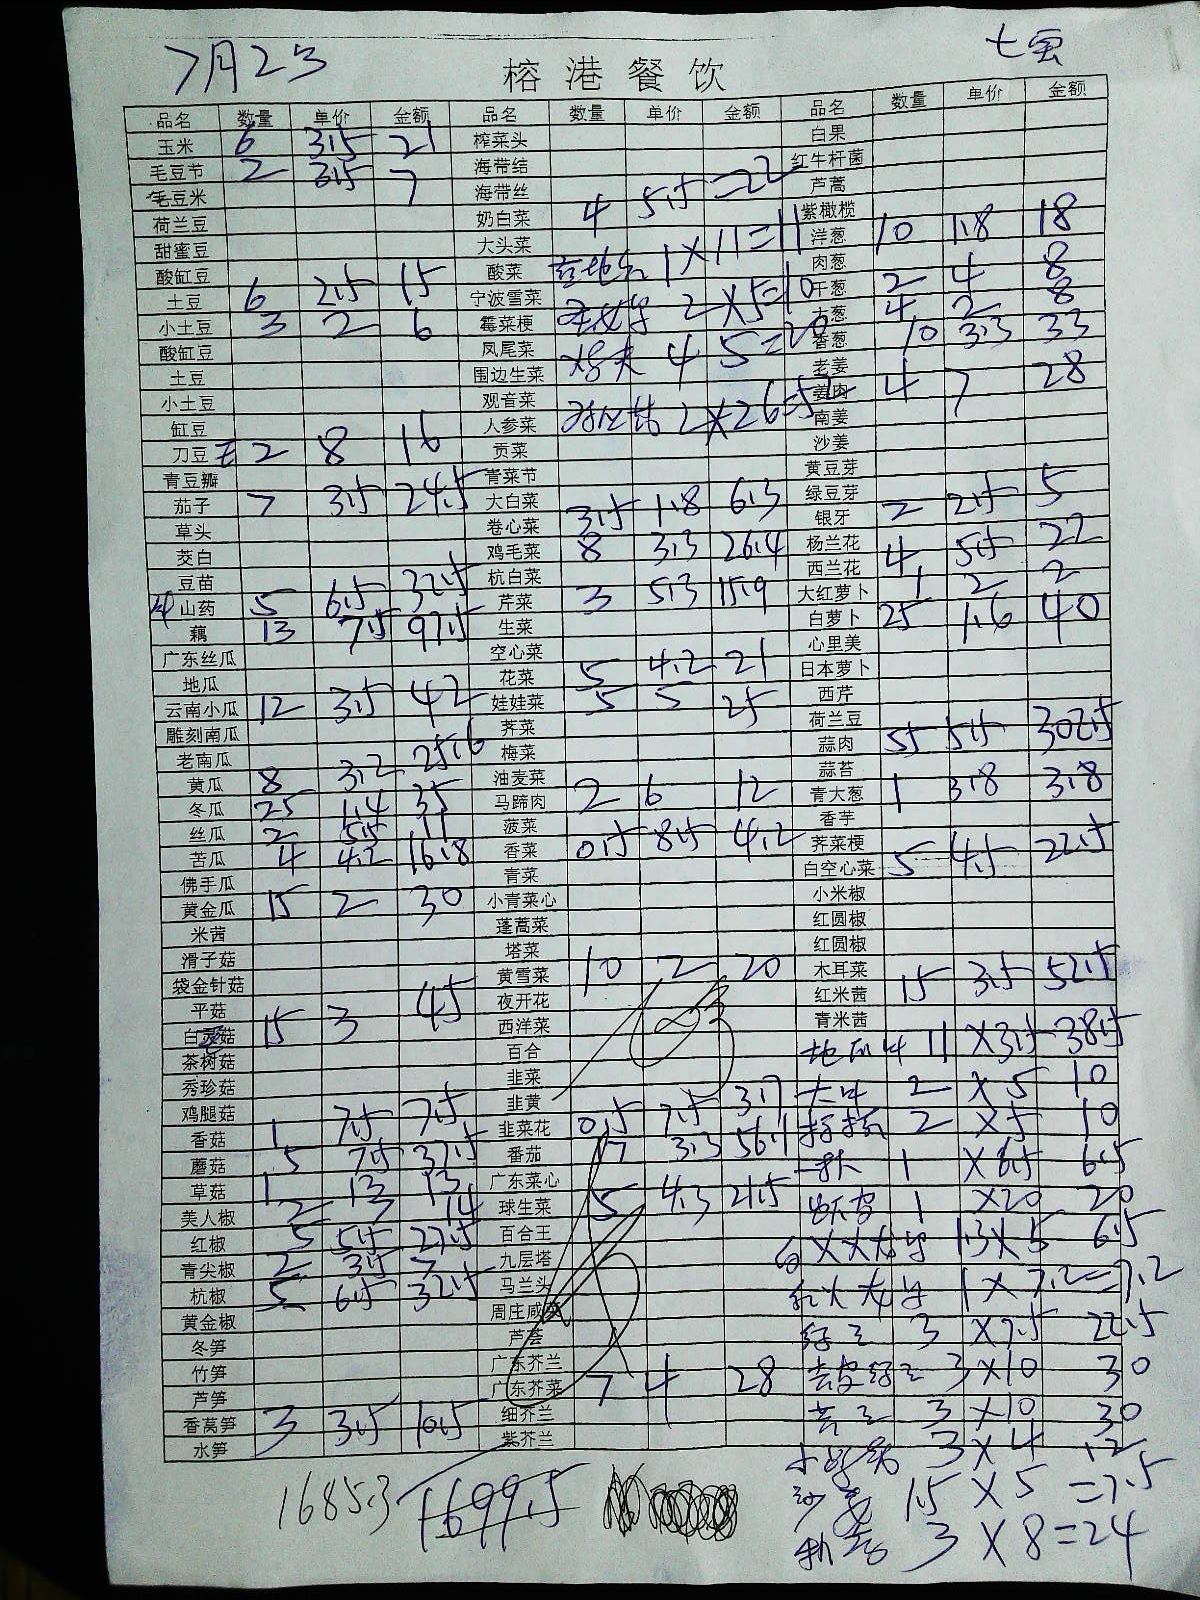 7月2号
七宝
榕港餐饮
品名 数量 单价 金额 品名 数量 单价 金额 品名 数量 单价 金额
玉米 6 3.5 21 榨菜头 白果
毛豆节 2 3.5 7 海带结 红牛杆菌
毛豆米 海带丝 芦蒿
荷兰豆 奶白菜 4 5.5 =22 紫橄榄
甜蜜豆 大头菜 洋葱 10 1.8 18
酸缸豆 酸菜 1×11=11 肉葱
土豆 6 2.5 15 宁波雪菜 2×5=10 干葱 2 4 8
小土豆 3 2 6 霉菜梗 大葱 4 2 8
酸缸豆 凤尾菜 4 5=20 香葱 10 3.3 33
土豆 围边生菜 老姜
小土豆 观音菜 2×26=52 姜肉 4 7 28
缸豆 人参菜 南姜
刀豆 2 8 16 贡菜 沙姜
青豆瓣 青菜节 黄豆芽
茄子 7 3.5 24.5 大白菜 3.5 1.8 6.3 绿豆芽 2 2.5 5
草头 卷心菜 银牙
茭白 鸡毛菜 8 3.3 26.4 杨兰花 4 5.5 22
豆苗 杭白菜 西兰花
山药 5 6.5 32.5 芹菜 3 5.3 15.9 大红萝卜 1 2 2
藕 13 7.5 97.5 生菜 白萝卜 25 1.6 40
广东丝瓜 空心菜 心里美
地瓜 花菜 5 4.2 21 日本萝卜
云南小瓜 12 3.5 42 娃娃菜 5 5 25 西芹
雕刻南瓜 荠菜 荷兰豆
老南瓜 梅菜 蒜肉 55 5.5 302.5
黄瓜 8 3.2 25.6 油麦菜 蒜苔
冬瓜 25 1.4 35 马蹄肉 2 6 12 青大葱 1 3.8 3.8
丝瓜 2 5.5 11 菠菜 香芋
苦瓜 4 4.2 16.8 香菜 0.5 8.5 4.2 荠菜梗
佛手瓜 青菜 白空心菜 5 4.5 22.5
黄金瓜 15 2 30 小青菜心 小米椒
米茜 蓬蒿菜 红圆椒
滑子菇 塔菜 红圆椒
袋金针菇 黄雪菜 10 2 20 木耳菜
平菇 夜开花 红米茜 15 3.5 52.5
白灵菇 15 3 45 西洋菜 青米茜
茶树菇 百合 11 ×3.5 38.5
秀珍菇 韭菜 2 ×5 10
鸡腿菇 韭黄 2 ×5 10
香菇 1 7.5 7.5 韭菜花 0.5 7.5 3.7
蘑菇 5 7.5 37.5 番茄 17 3.3 56.1 1 ×6.5 6.5
草菇 1 13 13 广东菜心
美人椒 2 7 14 球生菜 5 4.3 21.5 1 ×20 20
红椒 5 5.5 27.5 百合王 1.3×5 6.5
青尖椒 2 3.5 7 九层塔
杭椒 5 6.5 32.5 马兰头 1×7.2=7.2
黄金椒 周庄咸菜 3 ×7.5 22.5
冬笋 芦荟
竹笋 广东芥兰 3×10 30
芦笋 广东芥菜 7 4 28
香莴笋 3 3.5 10.5 细芥兰 3 ×10 30
水笋 紫芥兰
3×4 12
1.5×5=7.5
3×8=24
1685.3 1699.5